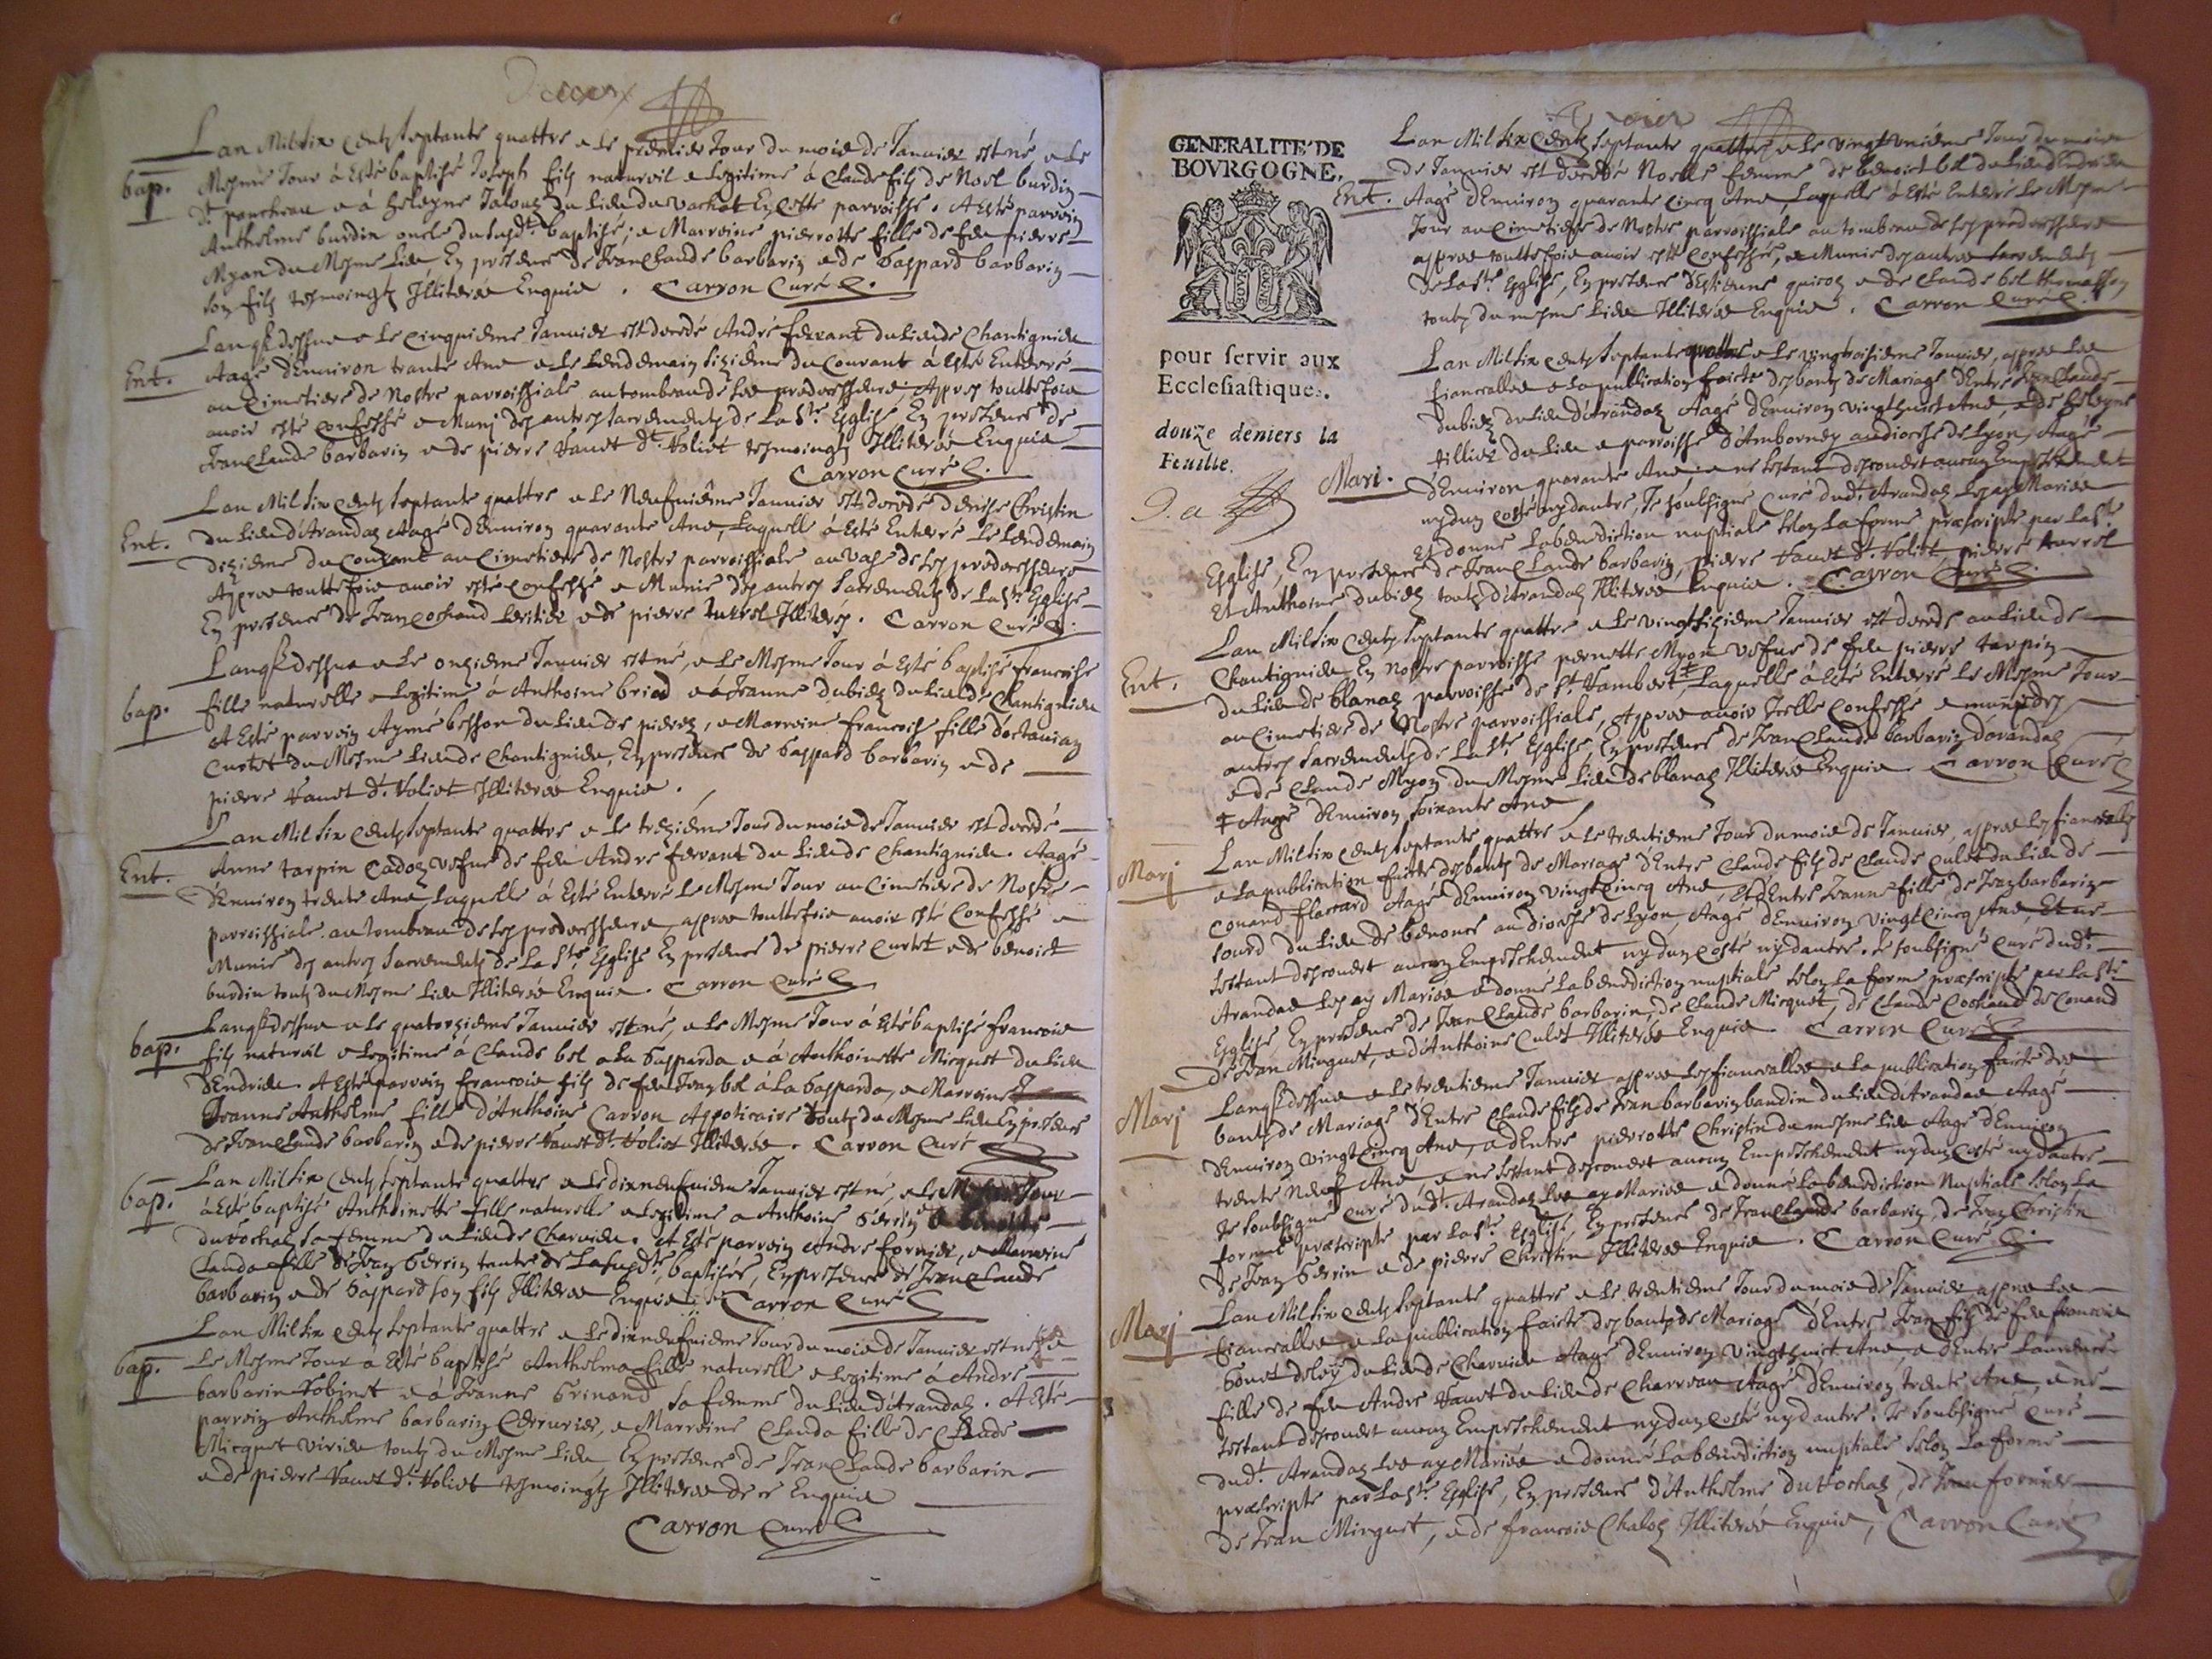 Lan Mil Six Centz septante quattre & le premier Jour du mois de Januier est né & le
bap. Mesme Jour à esté baptisé Joseph filz naturel & legitime à Claude filz de Noel burdin
dt & à heleyne du lieu du vachat En Cette parroisse. A esté parrein
Anthelme burdin oncle du susdt baptisé, & Marreine pierrotte fille de feu pierre
Myon du Mesme lieu En presence de Jean Claude barbarin & de Gaspard barbarin
son filz tesmoingtz Illiterés Enquis. Carron Curé
Lan q dessus & le cinquieme Januier est decedé André feruant du lieu de Chantignieu
Ent. Aagé dEnuiron trante Ans & le lendemain sizieme du Courant à esté Enterré
au Cimetiere de Nostre parroissiale au tombeau de ses predecesseurs, Apres touttefois
auoir esté Confessé & Muni des autres sacrementz de la Ste Esglise En presence de
Jean Claude barbarin & de pierre dt Voliet tesmoingtz Illiterés Enquis
Carron Curé
Lan Mil Six Centz septante quattre & le Neufuième Januier est decedé denise Christin
Ent. du lieu d'Arandaz Aagé dEnuiron quarante Ans, Laquelle à esté Enterré le lendemain
dizieme du Courant au Cimetiere de Nostre parroissiale au vas de ses predecesseurs
Apres touttefois auoir esté Confessé & Munie des autres sacrementz de la Ste Esglise
En presence de Jean Cochand & de pierre Illiterés. Carron Curé
Lan q dessus & le onzieme Januier est né, & le Mesme Jour à esté baptisé francoise
bap. fille naturelle & legitime à Anthoine & à Jeanne dubiez du lieu de Chantignieu
A esté parrein Aymé besson du lieu de, & Marreine francoise fille d'octauian
Curtet du Mesme lieu de Chantignieu, En presence de Gaspard barbarin & de
pierre dt Voliet Illiterés Enquis.
Lan Mil Six Centz septante quattre & le treizieme Jour du mois de Januier est decedé
Ent. Anne tarpin Cadoz vefue de feu André feruant du lieu de Chantignieu. Aagé
dEnuiron trente Ans, Laquelle à esté Enterré le Mesme Jour au Cimetiere de Nostre
parroissiale au tombeau de ses predecesseurs, apres touttefois auoir esté Confessé &
Munie des autres sacrementz de la Ste Esglise En presence de pierre Curtet & de benoict
burdin toutz du Mesme lieu Illiterés Enquis. Carron Curé
Lan q dessus & le quatorzieme Januier est né, & le Mesme Jour à esté baptisé francois
bap. filz naturel & legitime à Claude bel à la Gasparda & à Anthoinette Micquet du lieu
dEndrieu. A esté parrein francois filz de feu Jean bel à la Gasparda, & Marreine
Jeanne Anthelme fille d'Anthoine Carron Appoticaire toutz du Mesme lieu En presence
de Jean Claude barbarin & de pierre dt Voliet Illiterés. Carron Curé
Lan Mil Six Centz septante quattre & le dixneufuieme Januier est né, & le Mesme Jour
bap. à esté baptisé Anthoinette fille naturelle & legitime à Anthoine Gerrin &
duCochaz sa femme du lieu de Charuieu. A esté parrein André fornier, & Marreine
Clauda fille de Jean Gerrin tante de la susdte baptisée, En presence de Jean Claude
barbarin & de Gaspard son filz Illiterés Enquis. Carron Curé
Lan Mil Six Centz septante quattre & le dixneufuieme Jour du mois de Januier est né &
bap. le Mesme Jour à esté baptisé Anthelma fille naturelle & legitime à André
barbarin Robinet & à Jeanne Grinand sa femme du lieu d'Arandaz. A esté
parrein Anthelme barbarin, & Marreine Clauda fille de Claude
Micquet toutz du Mesme lieu En presence de Jean Claude barbarin
& de pierre dt Voliet tesmoingtz Illiterés de ce Enquis
Carron Curé
GENERALITE' DE
BOVRGOGNE.
pour servir aux
Ecclesiastiques.
douze deniers la
Feuille.
Lan Mil Six Centz septante quattre & le vingt unieme Jour du mois
de Januier est decedé Noelle femme de benoict bel du lieu dEndrieu
Ent. Aagé dEnuiron quarante Cincq Ans, Laquelle à esté Enterré le Mesme
Jour au Cimetiere de Nostre parroissiale au tombeau de ses predecesseurs
apres touttefois auoir esté Confessée, & Munie des autres sacrementz
de la Ste Esglise, En presence d'Estienne & de Claude bel
toutz du mesme lieu Illiterés Enquis. Carron Curé
Lan Mil Six Centz septante quattre & le vingtroisieme Januier, apres les
fiancailles & la publication faicte des bantz de Mariage dEntre Jean Claude
dubiez du lieu d'Arandaz Aagé dEnuiron vingthuict Ans, & de heleyne
tillier du lieu & parroisse d'Ambournay au diocese de Lyon, Aagé
Mari. dEnuiron quarante Ans & ne sestant descouuert aucun Empeschement
ny dun costé ny dautre, Je soubsigné Curé dudt Arandaz les ay Mariés
et donné la benediction nuptiale selon la forme prescripte par la Ste
Esglise, En presence de Jean Claude barbarin, pierre dt Voliet pierre
et Anthoine dubiez toutz d'Arandaz Illiterés Enquis. Carron Curé
Lan Mil Six Centz septante quattre & le vingtsizieme Januier est decedé au lieu de
Ent. Chantignieu En nostre parroisse pernette Myon vefue de feu pierre tarpin
du lieu de blanaz parroisse de St Rambert ‡ Laquelle à esté Enterré le Mesme Jour
au Cimetiere de Nostre parroissiale, Apres auoir Icelle Confessé & munie des
autres sacrementz de la Ste Esglise, En presence de Jean Claude barbarin d'Arandaz
& de Claude Myon du Mesme lieu de blanaz Illiterés Enquis. Carron Curé
‡ Aagé dEnuiron soixante Ans
Lan Mil Six Centz septante quattre & le trentieme Jour du mois de Januier, apres les fiancailles
Marj & la publication faicte des bantz de Mariage dEntre Claude filz de Claude Culet du lieu de
Conand flaccard Aagé dEnuiron vingt Cincq Ans, Et dEntre Jeanne fille de Jean barbarin
sourd du lieu de benonce au diocese de Lyon, Aagé dEnuiron vingt Cincq Ans, Et ne
sestant descouuert aucun Empeschement ny dun costé ny dautre. Je soubsigné Curé dudt
Arandas les ay Mariés & donné la benediction nuptiale selon la forme prescripte par la Ste
Esglise En presence de Jean Claude barbarin, de Claude Micquet, de Claude Cochand de Conand
de Jean Minguet, & d'Anthoine Culet Illiterés Enquis. Carron Curé
Lan q dessus & le trentieme Januier apres les fiancailles & la publication faicte des
Marj bantz de Mariage dEntre Claude filz de Jean barbarin bandin du lieu d'Arandas Aagé
dEnuiron vingt Cincq Ans, & dEntre pierrotte Christin du mesme lieu Aagé dEnuiron
trente Neuf Ans & ne sestant descouuert aucun Empeschement ny dun costé ny dautre
Je soubsigné Curé dudt Arandaz les ay Mariés & donné la benediction Nuptiale selon la
forme prescripte par la Ste Esglise, En presence de Jean Claude barbarin, de Jean Christin
de Jean Gerrin & de pierre Christin Illiterés Enquis. Carron Curé
Lan Mil Six Centz septante quattre & le trentieme Jour du mois de Januier apres les
Marj fiancailles & la publication faicte des bantz de Mariage dEntre Jean filz de feu francois
Gonet du lieu de Charuieu Aagé dEnuiron vingthuict Ans, & dEntre Laurence
fille de feu André du lieu de Charveau Aagé dEnuiron trente Ans, & ne
sestant descouuert aucun Empeschement ny dun costé ny dautre. Je soubsigné Curé
dudt Arandaz les ay Mariés & donné la benediction nuptiale selon la forme
prescripte par la Ste Esglise, En presence d'Anthelme duCochaz, de Jean fornier
de Jean Minguet, & de francois Chaloz Illiterés Enquis, Carron Curé